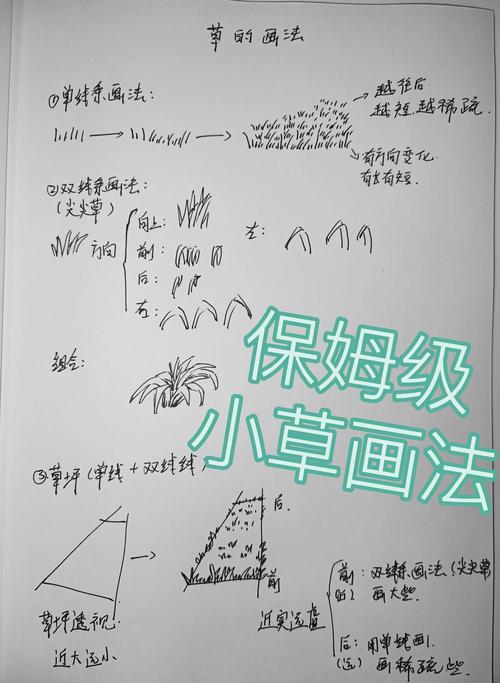 草的画法
①单线条画法:
越往后
越短.越稀疏.
有方向变化
有长有短.
②双线条画法:
(尖尖草)
方向
向上:
前:
后:
右:
左:
组合:
保姆级
小草画法
③草坪(单线+双线线)
后.
前
草坪透视.
近大远小
近实远虚
前:双线条画法(尖尖草
(近) 画大些.
后:用单线画.
(远) 画稀疏些.